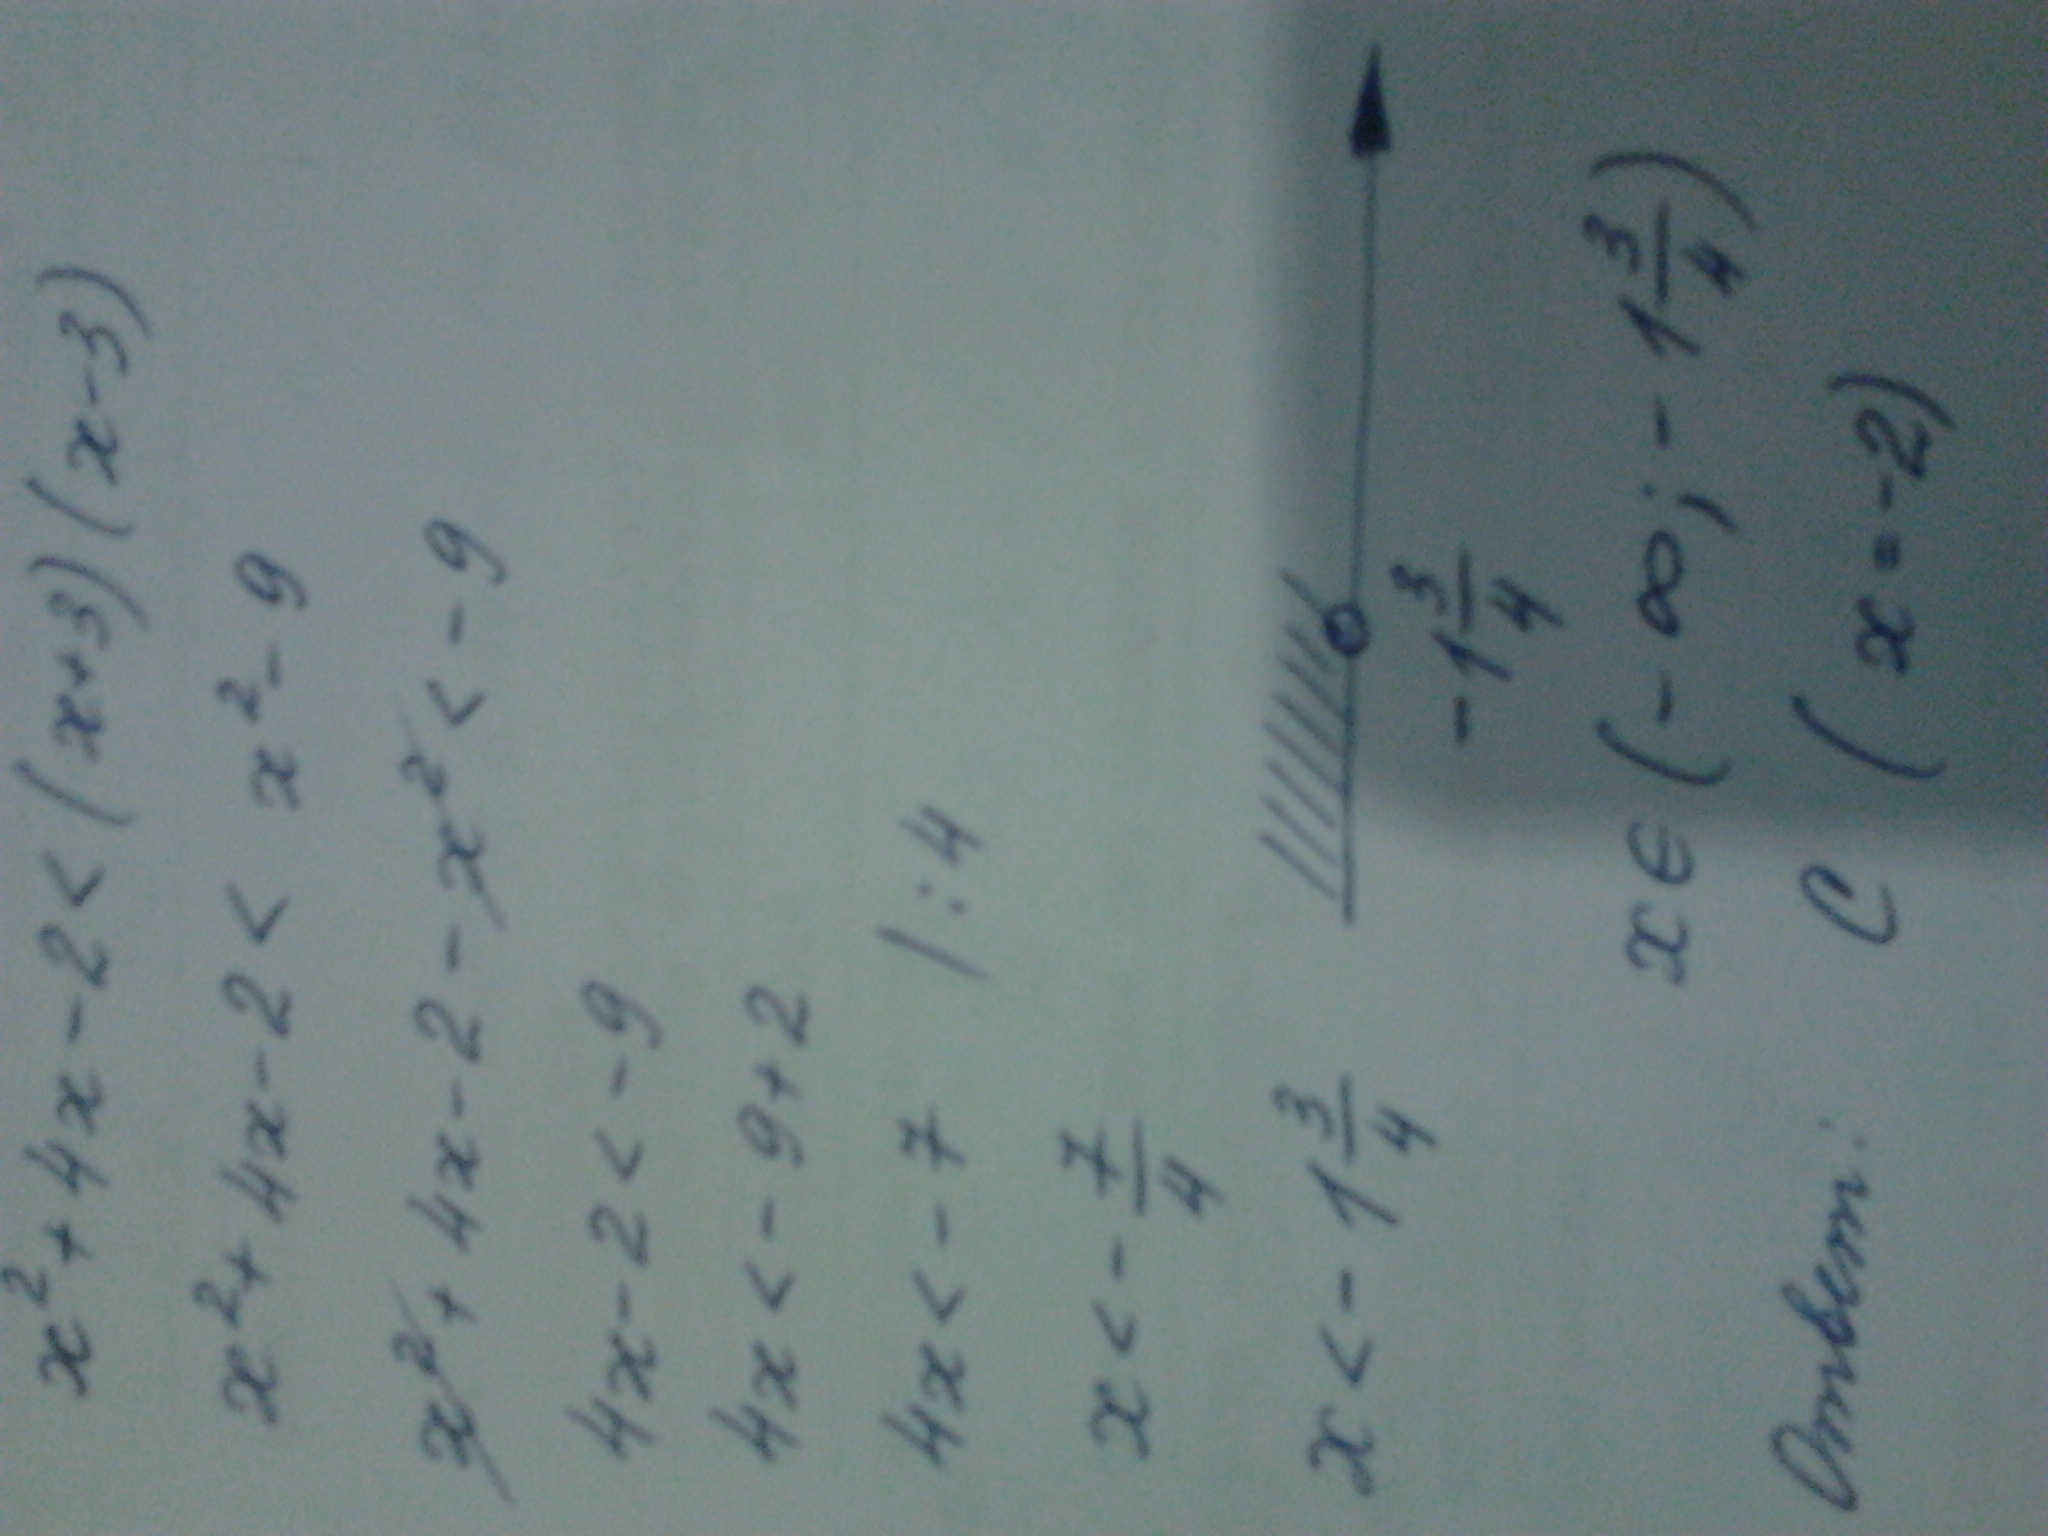 x² + 4x - 2 < (x+3)(x-3)
x² + 4x - 2 < x² - 9
x² + 4x - 2 - x² < - 9
4x - 2 < - 9
4x < - 9 + 2
4x < - 7 / : 4
x < - 7/4
x < - 1 3/4
- 1 3/4
x ∈ (- ∞; - 1 3/4)
Ответ: C (x = -2)